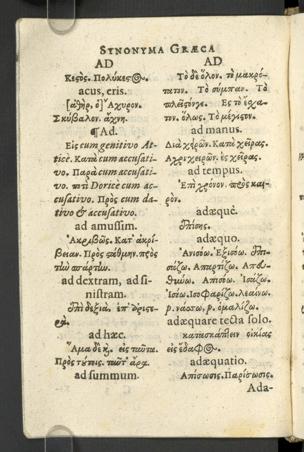 SYNONYMA GRÆCA
AD
Κεςὸς. Πολύκεςος.
acus, eris.
[ἀχὴρ, ὁ] Ἄχυρον.
Σκύβαλον. ἄχνη.
¶Ad.
Εἰς cum genitivo At-
ticè. Κατὰ cum accusati-
vo. Παρὰ cum accusati-
vo. ποτὶ Doricè cum ac-
cusativo. Πρὸς cum da-
tivo & accusativo.
ad amussim.
Ἀκριβῶς. Κατ' ἀκρί-
βειαν. Πρὸς στάθμην. πρὸς
τῶν ἀπάρτων.
ad dextram, ad si-
nistram.
ἐπὶ δεξιὰ. ἐπ' ἀριστε-
ρὰ.
ad hæc.
Ἅμα δὲ κ. εἰς ταῦτα.
Πρὸς τούτοις.
ad summum.
AD
Τὸ δὲ ὅλον. τὸ μακρό-
τατον. Τὸ σύμπαν. Τὸ
πλεῖστον. Ἐς τὸ ἔσχα-
τον. ὅλως. Τὸ μέγιστον.
ad manus.
Διὰ χειρῶν. Κατὰ χεῖρας.
Ἄχρι χειρῶν. ἐς χεῖρας.
ad tempus.
Ἐπὶ χρόνον. πρὸς και-
ρὸν.
adæquè.
ἐπίσης.
adæquo.
Ἀνισόω. Ἐξισόω. ἐπι-
σάζω. Ἀπαρτίζω.
Ἀπισόω. Ἰσάζω.
Ἰσόω. Ἰσοφαρίζω. λεαίνω.
ὁμαλίζω.
adæquare tecta solo.
κατασκάπτειν οἰκίας
εἰς ἔδαφος.
adæquatio.
Ἀπίσωσις. Παρίσωσις.
Ada-